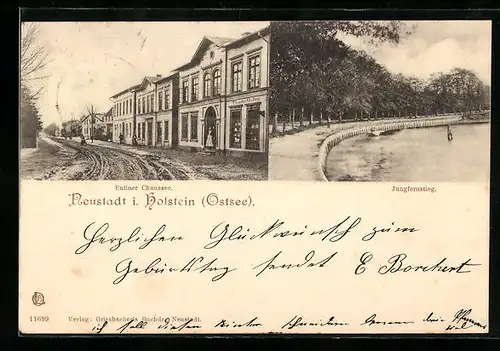 Eutiner Chaussee.
Jungfernstieg.
Neustadt i. Holstein (Ostsee).
Herzlichen Glückwunsch zum
Geburtstag sendet E Borchert
11699 Verlag: Griebsche's Buchdr. Neustadt.
ich soll diesen